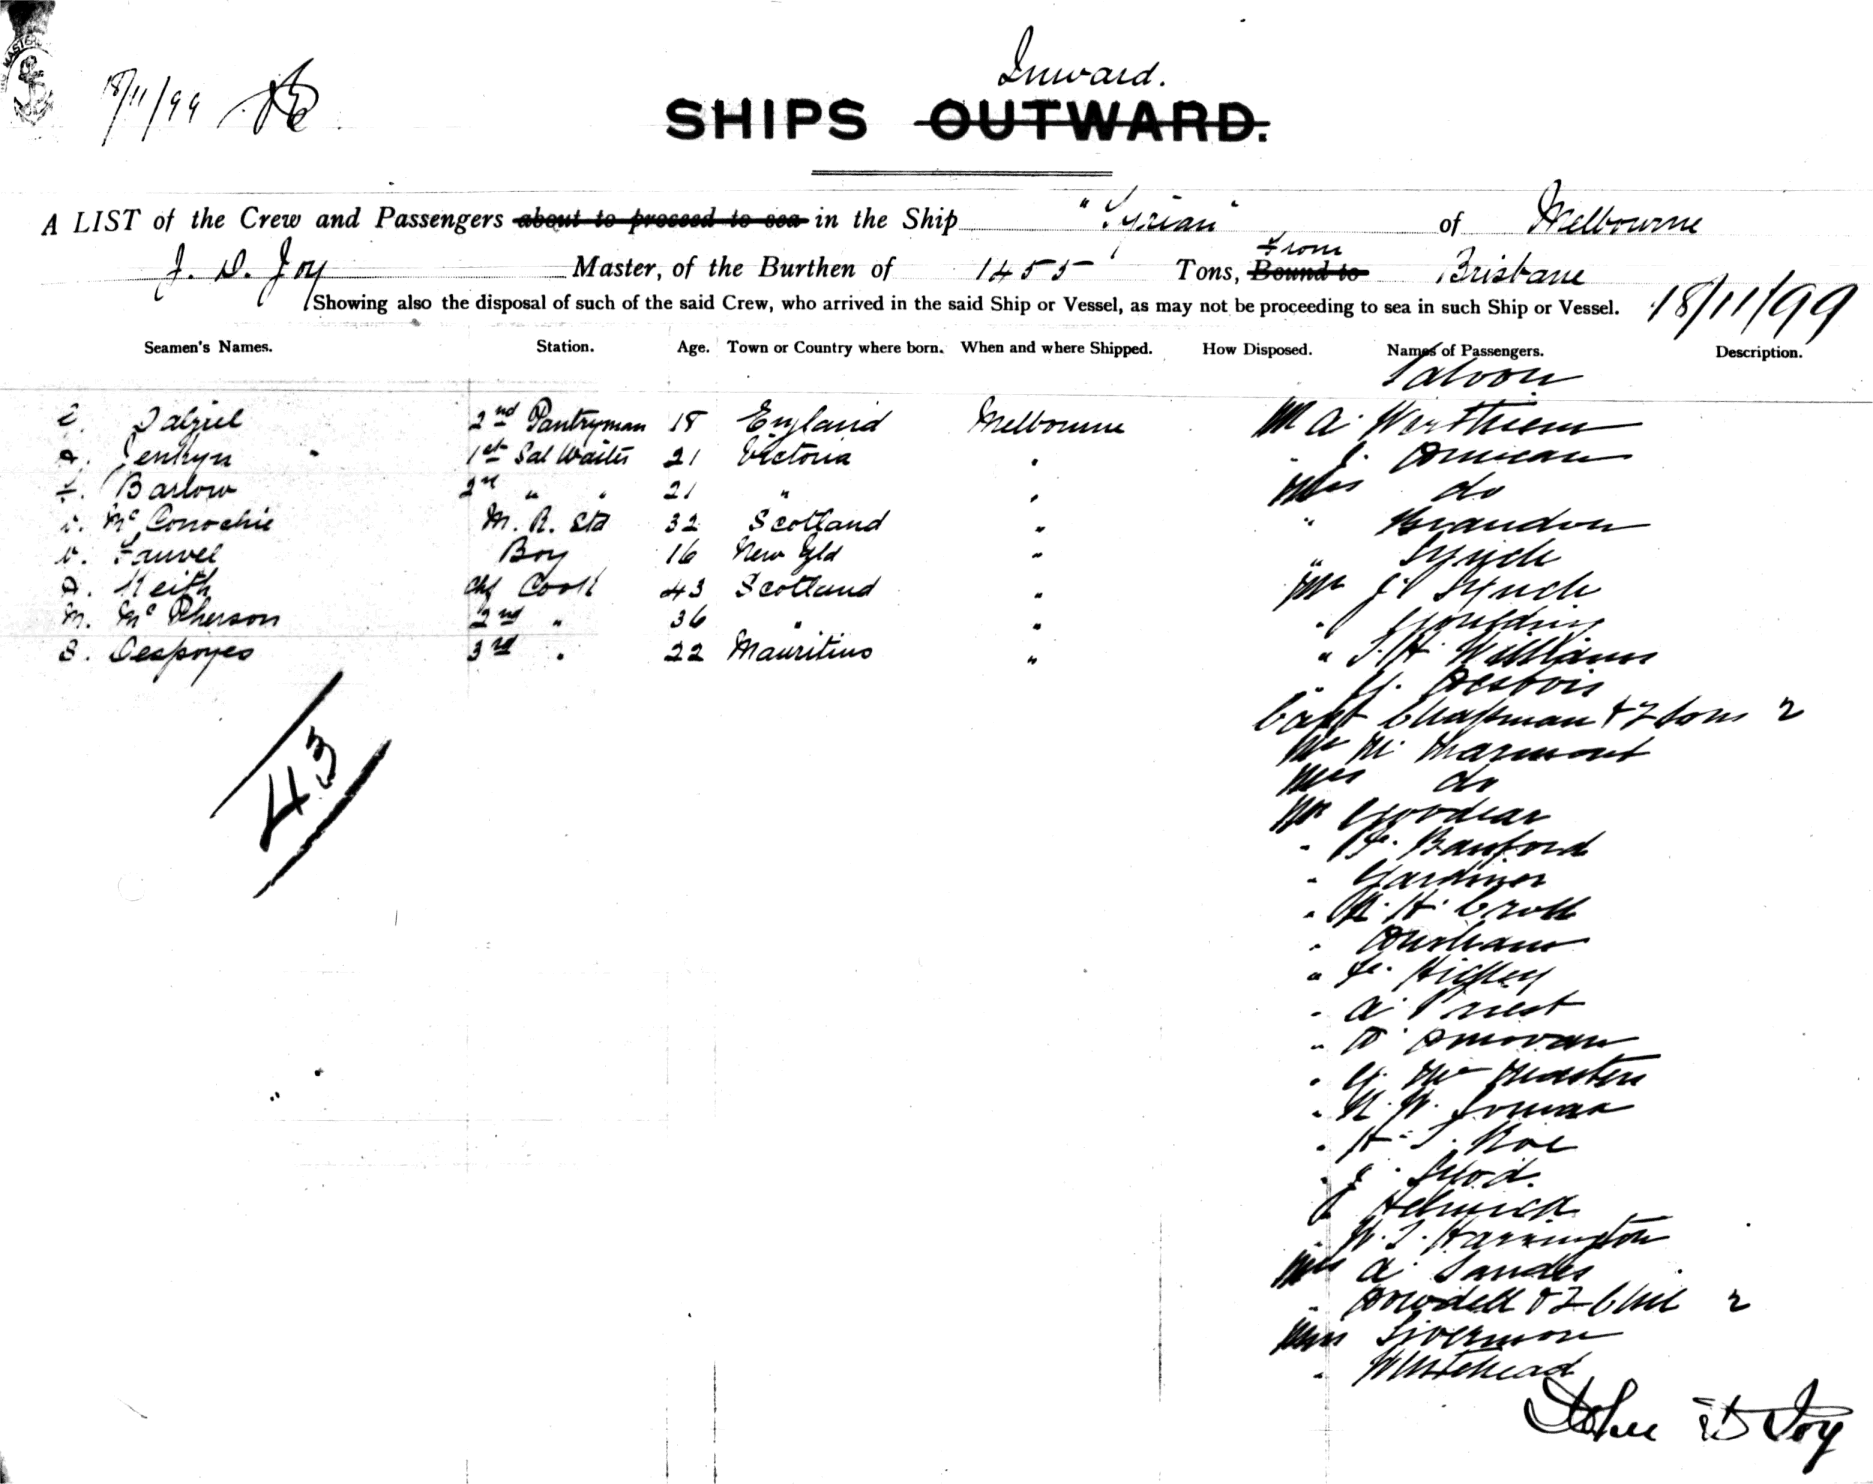 Inward.
18/11/99
SHIPS OUTWARD.
A LIST of the Crew and Passengers about to proceed to sea in the Ship "Tyrian" of Melbourne
J. D. Joy Master, of the Burthen of 1455 Tons, Bound to From Brisbane
Showing also the disposal of such of the said Crew, who arrived in the said Ship or Vessel, as may not be proceeding to sea in such Ship or Vessel. 18/11/99
Seamen's Names. Station. Age. Town or Country where born. When and where Shipped. How Disposed. Names of Passengers. Description.
Saloon
Dalziel 2nd Pantryman 18 England Melbourne Mr A.
A. Jenkyn 1st Sal Waiter 21 Victoria " J. Duncan
Barlow 2nd " " 21 " " Mrs do
McConochie 32 Scotland " " Brandon
Fauvel Boy 16 New Zld " " Lynch
A. Keith Chf Cook 43 Scotland " Mr J. Lynch
M. McPherson 2nd " 36 " " " Goulding
S. 3rd " 22 Mauritius " " Williams
" G. Desbois
Capt Chapman & 2 sons 2
Mr M. Marmont
Mrs do
Mr Goodear
" F. Banford
" Gardiner
" R. H. Croll
" Durham
" F. Hickey
" A. Priest
" D. Donovan
" G. McMasters
" N. W.
" H. J. Roe
" J.
J Helmich
" W. J. Harrington
Mrs A. Sandes
" Dowdell & 2 Chil 2
Miss Livermore
" Whitehead
43
John D Joy